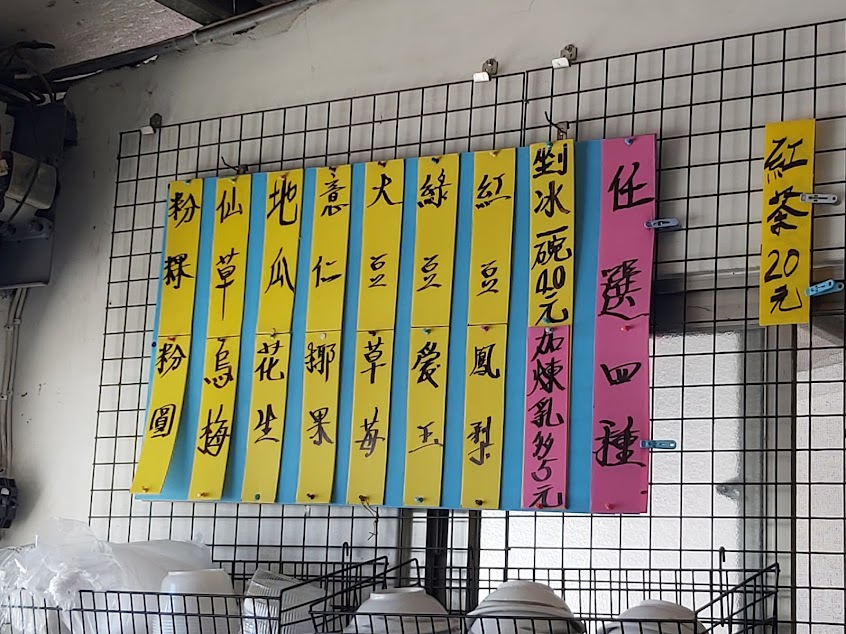 紅茶20元
任選四種
剉冰一碗40元
加煉乳多5元
紅豆
鳳梨
綠豆
愛玉
大豆
草莓
意仁
椰果
地瓜
花生
仙草
烏梅
粉粿
粉圓